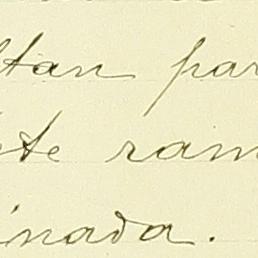 ltan par
ete ram
inada.